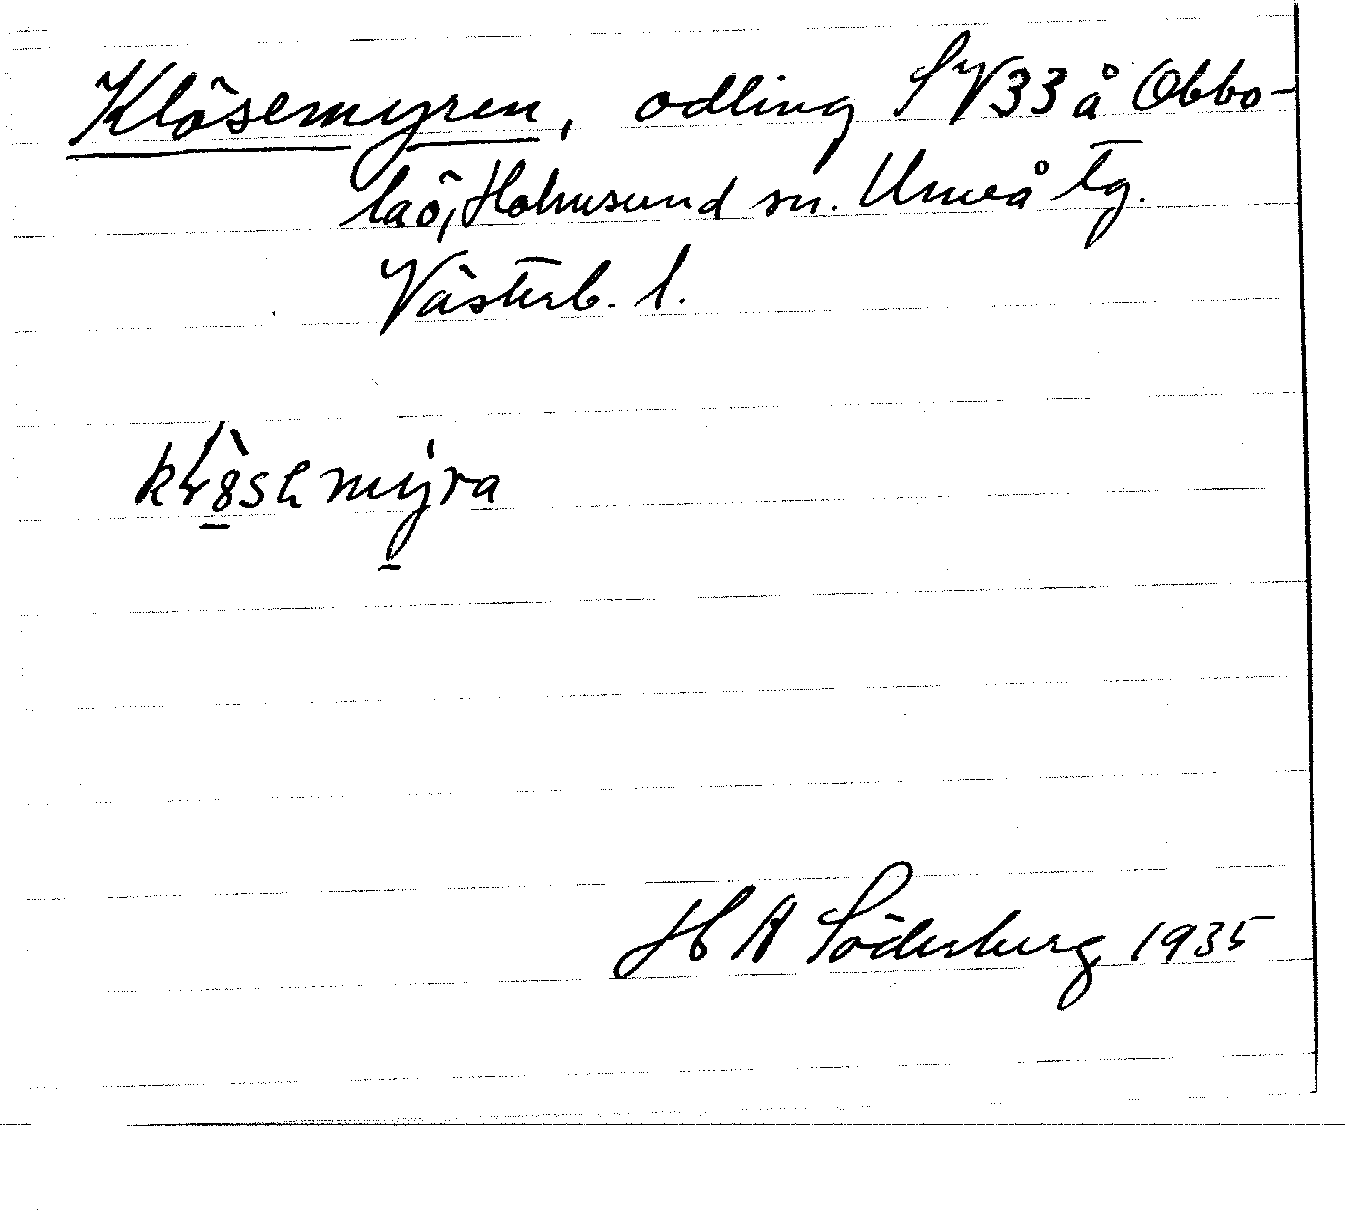 Klösemyren, odling SV33 å Obbo-
laö, Holmsund sn. Umeå tg.
Västerb. l.
myra
H A Söderberg 1935